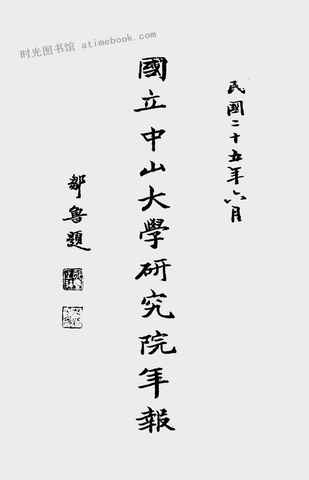 时光图书馆 atimebook.com
民國二十五年六月
國立中山大學研究院年報
鄒魯題